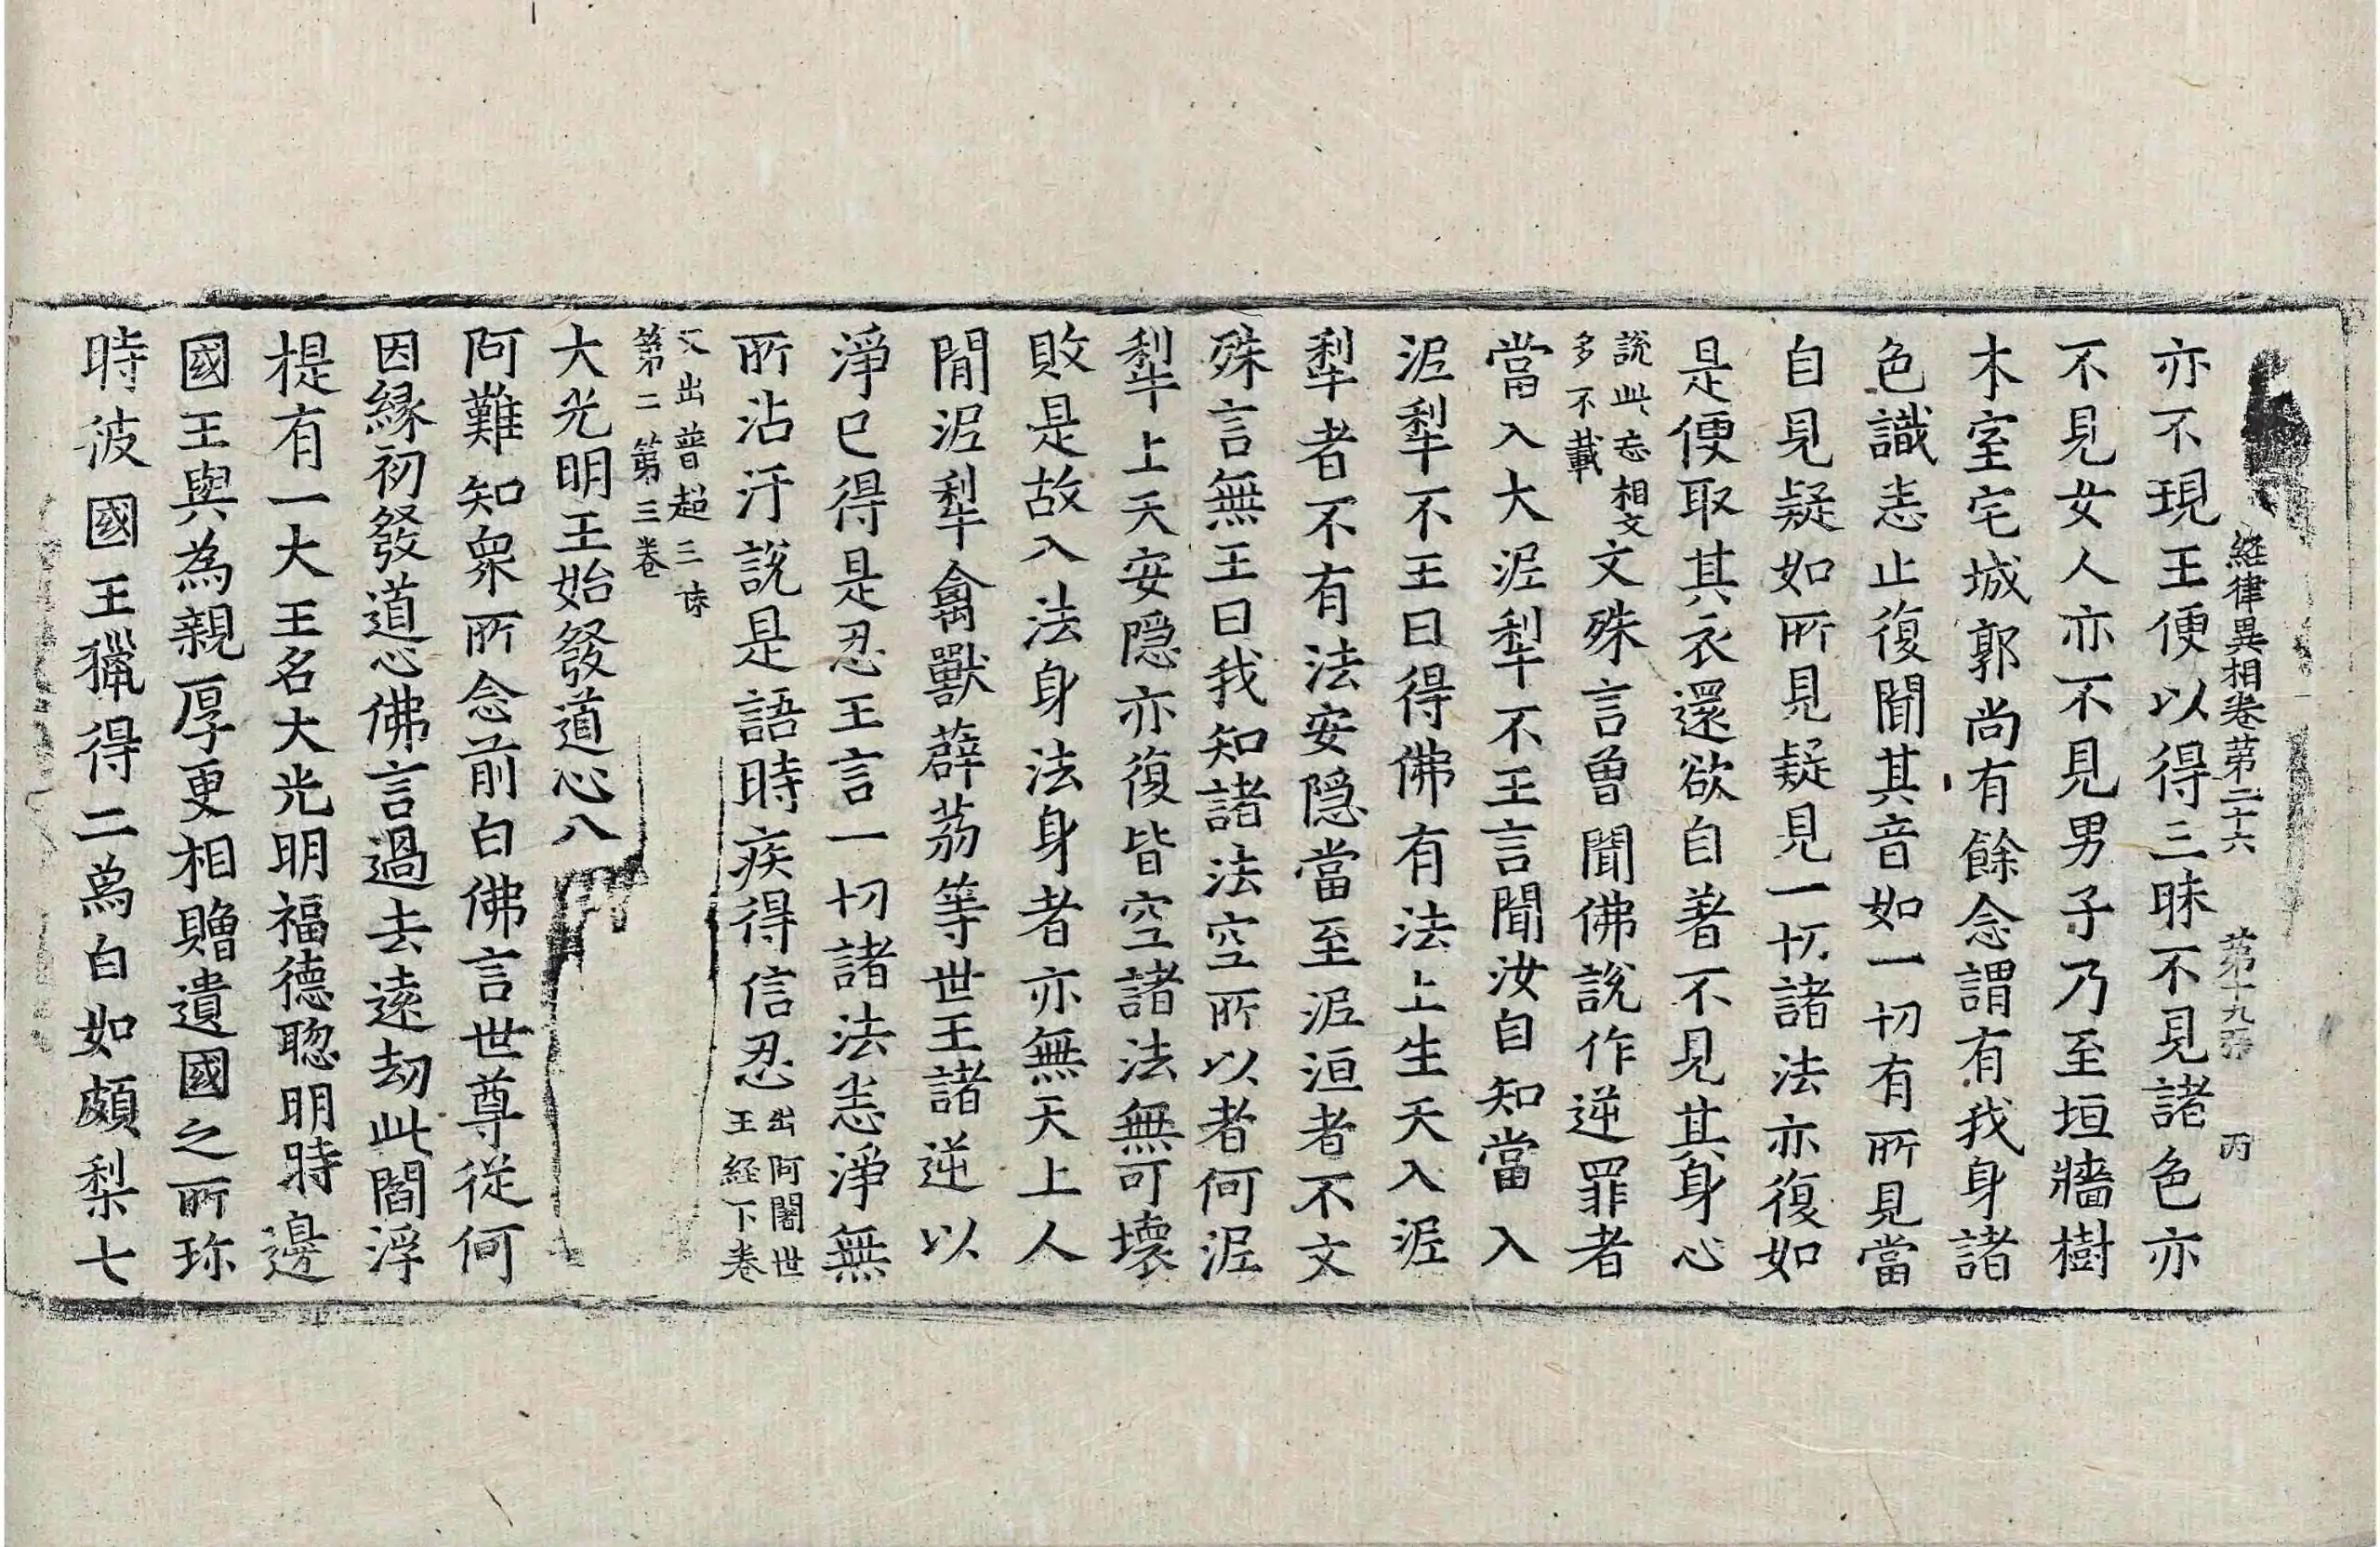 經律異相卷第二十六 第十九張 丙
亦不現王便以得三昧不見諸色亦
不見女人亦不見男子乃至垣牆樹
木室宅城郭尚有餘念謂有我身諸
色識恚止復聞其音如一切有所見當
自見疑如所見疑見一切諸法亦復如
是便取其衣還欲自著不見其身心
說此忘相文
多不載
文殊言曾聞佛說作逆罪者
當入大泥犁不王言聞汝自知當入
泥犁不王曰得佛有法上生天入泥
犁者不有法安隱當至泥洹者不文
殊言無王曰我知諸法空所以者何泥
犁上天安隱亦復皆空諸法無可壞
敗是故入法身法身者亦無天上人
間泥犁禽獸薜荔等世王諸逆以
淨已得是忍王言一切諸法恚淨無
所沾汙說是語時疾得信忍
出阿闍世
王經下卷
又出普超三昧
第二第三卷
大光明王始發道心八
阿難知衆所念前白佛言世尊從何
因緣初發道心佛言過去遠劫此閻浮
提有一大王名大光明福德聰明時邊
國王與為親厚更相贈遺國之所珎
時彼國王獵得二爲白如頗梨七